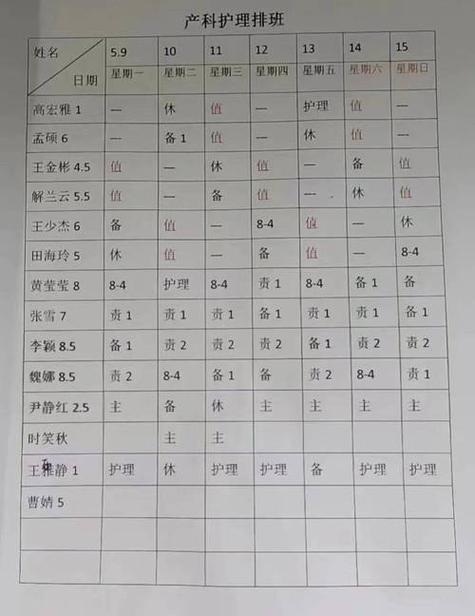 产科护理排班
姓名 日期 5.9 10 11 12 13 14 15
星期一 星期二 星期三 星期四 星期五 星期六 星期日
高宏雅 1 — 休 值 — 护理 值 —
孟硕 6 — 备 1 值 — 休 值 —
王金彬 4.5 值 — 休 值 — 备 值
解兰云 5.5 值 — 备 值 — 休 值
王少杰 6 备 值 — 8-4 值 — 休
田海玲 5 休 值 — 备 值 — 8-4
黄莹莹 8 8-4 护理 8-4 责 1 8-4 备 1 备
张雪 7 责 1 责 1 责 1 备 1 责 1 责 1 备 1
李颖 8.5 备 1 责 2 责 2 责 2 备 1 责 2 责 2
魏娜 8.5 责 2 8-4 备 1 备 责 2 8-4 责 1
尹静红 2.5 主 备 休 主 主 主 主
时笑秋 主 主
王雅静 1 护理 休 护理 护理 备 护理 护理
曹婧 5